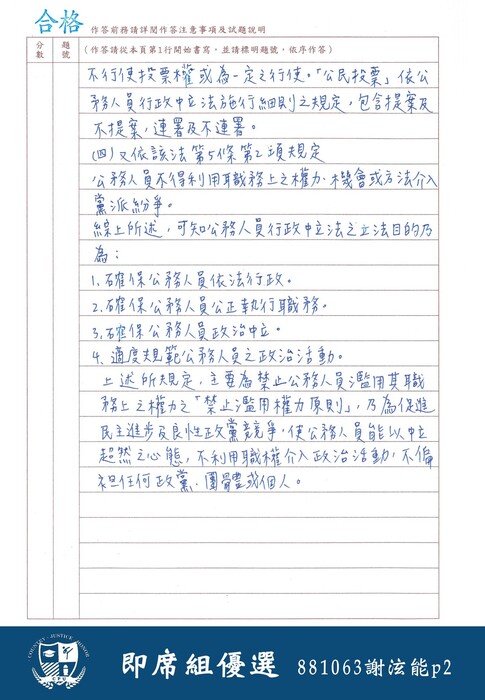 合格
作答前務請詳閱作答注意事項及試題說明
分數
題號
(作答請從本頁第1行開始書寫,並請標明題號,依序作答)
不行使投票權或為一定之行使。「公民投票」依公
務人員行政中立法施行細則之規定,包含提案及
不提案,連署及不連署。
(四)又依該法第5條第2項規定
公務人員不得利用職務上之權力、機會或方法介入
黨派紛爭。
綜上所述,可知公務人員行政中立法之立法目的乃
為:
1.確保公務人員依法行政。
2.確保公務人員公正執行職務。
3.確保公務人員政治中立。
4.適度規範公務人員之政治活動。
上述所規定,主要為禁止公務人員濫用其職
務上之權力之「禁止濫用權力原則」,乃為促進
民主進步及良性政黨競爭,使公務人員能以中立
超然之心態,不利用職權介入政治活動,不偏
袒任何政黨、團體或個人。
COUNTRY · JUSTICE · HONOR
即席組優選 881063謝泫能p2